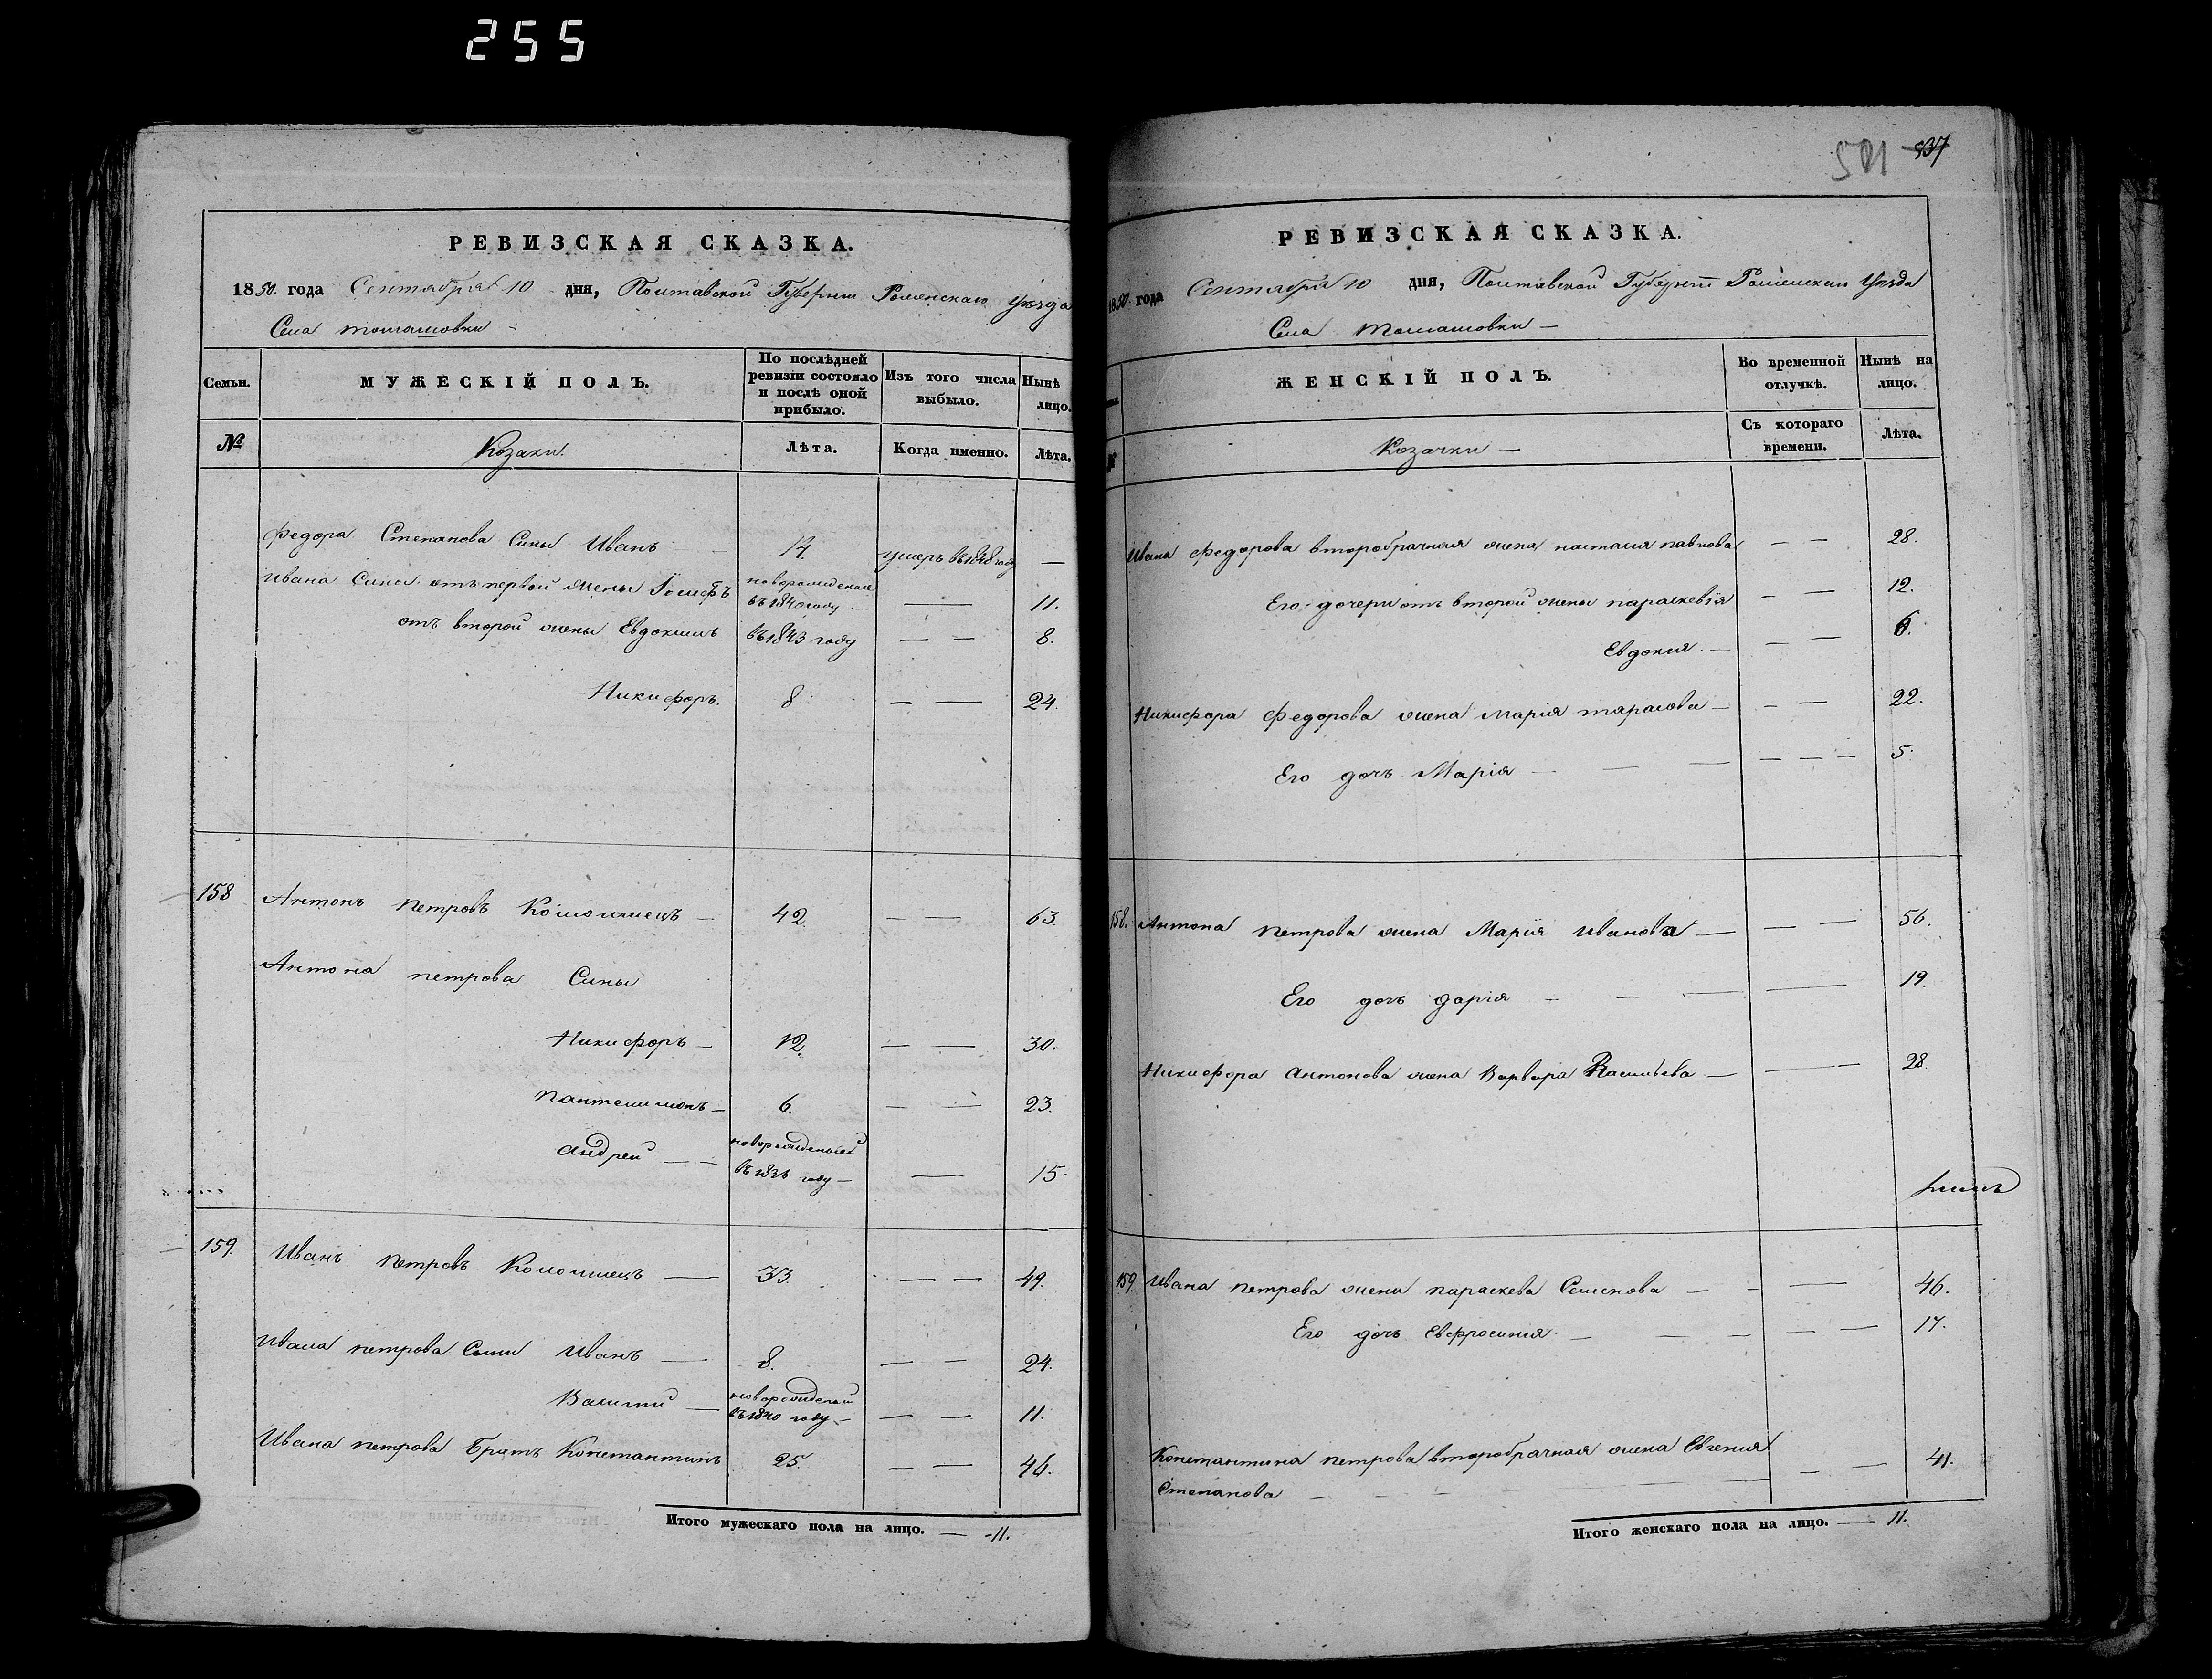 255
РЕВИЗСКАЯ СКАЗКА.
1850. года Сентября 10 дня, Полтавской Губернии Роменскаго Уѣзда
Села Томашовки
Семьи.
МУЖЕСКІЙ ПОЛЪ.
По послѣдней ревизіи состояло и послѣ оной прибыло.
Изъ того числа выбыло.
Нынѣ лицо.
№
Козаки.
Лѣта.
Когда именно.
Лѣта.
Федора Степанова Сины Иванъ — 14. умеръ въ 1848 году —
Ивана Сины отъ первой жены Іосифъ новорожденный въ 1840 году — — 11.
отъ второй жены Евдокимъ въ 1843 году — — 8.
Никифоръ. 8 — — 24.
158 Антонъ Петровъ Коломиецъ — 42. — — 63.
Антона петрова Сины
Никифоръ — 12. — — 30.
Пантелимонъ — 6. — — 23.
Андрей — — новорожденный
въ 1836 году — — 15.
159. Иванъ Петровъ Коломиецъ — 33. — — 49.
Ивана петрова Сини Иванъ — 8. — — 24.
Василий — новорожденый
въ 1840 году — — — 11.
Ивана петрова Братъ Константинъ 25. — — 46.
Итого мужескаго пола на лицо. — 11.
501 537
РЕВИЗСКАЯ СКАЗКА.
1850. года Сентября 10 дня, Полтавской Губерніи Роменскаго Уѣзда
Села Томашовки —
ЖЕНСКІЙ ПОЛЪ.
Во временной отлучкѣ.
Нынѣ на лицо.
№
Козачки —
Съ котораго времени.
Лѣта.
Ивана Федорова второбрачная жена наталия павлова — — 28.
Его дочери отъ второй жены параскевія — — 12.
Евдокия. — — — 6.
Никифора Федорова жена Марія тарасова — — — 22.
Его дочь Марія — — — — — — 5.
158. Антона Петрова жена Марія Иванова — — — 56.
Его дочь дарія — — — — 19.
Никифора Антонова жена Варвара Васильева — — 28.
159 Ивана петрова жена параскева Семенова — — — 46.
Его дочь Евфросиния. — — — — — 17.
Константина петрова второбрачная жена Евгения — — 41.
Степанова —
Итого женскаго пола на лицо. — 11.